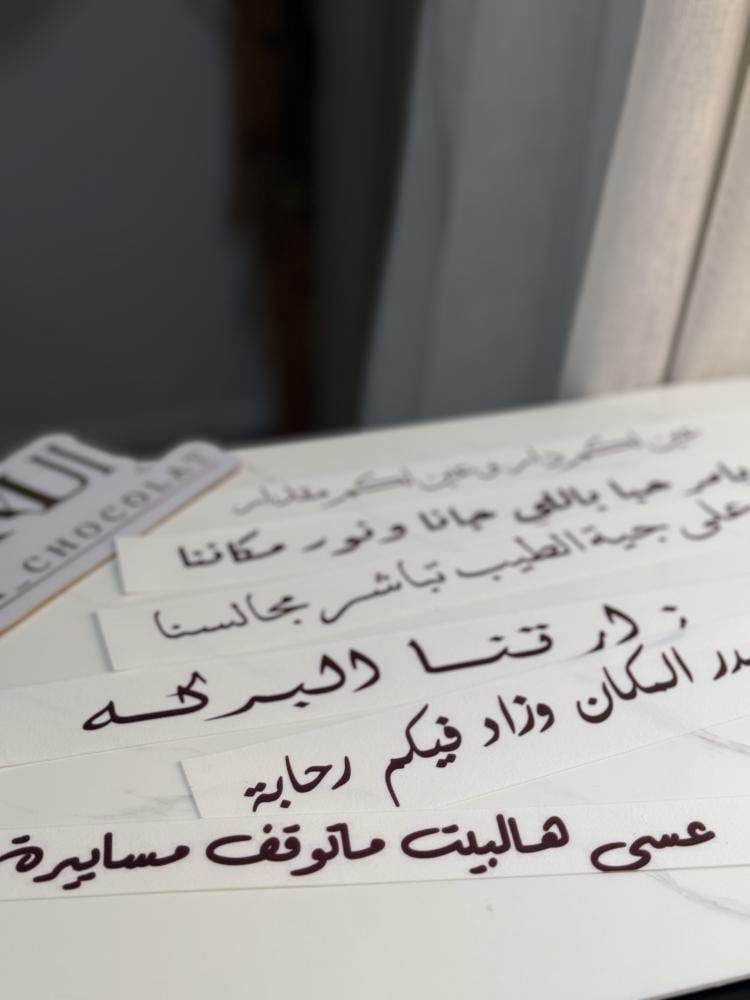 CHOCOLAT
عين لكم دار وعين لكم مقدار
يامرحبا باللي جانا ونور مكاننا
على جية الطيب تباشر مجالسنا
زارتنا البركه
المكان وزاد فيكم رحابة
عسى هالبيت ماتوقف مساييرة